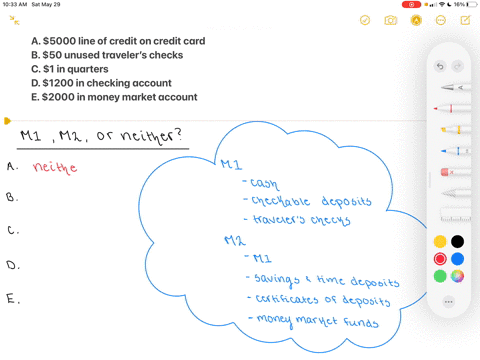 10:33 AM Sat May 29
16%
A. $5000 line of credit on credit card
B. $50 unused traveler's checks
C. $1 in quarters
D. $1200 in checking account
E. $2000 in money market account
M1, M2, or neither?
A. neithe
B.
C.
D.
E.
M1
- cash
- checkable deposits
- traveler's checks
M2
- M1
- savings & time deposits
- certificates of deposits
- money market funds